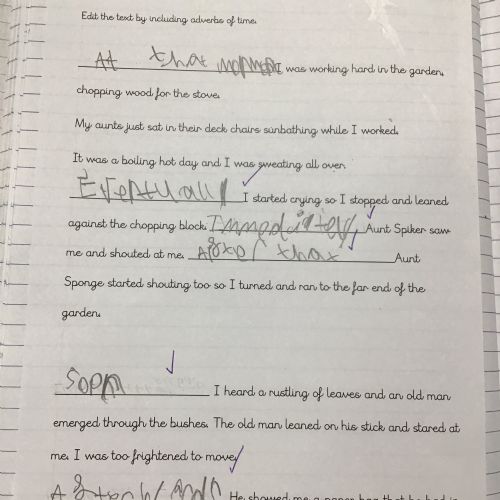 Edit the text by including adverbs of time.
At that moment I was working hard in the garden,
chopping wood for the stove.
My aunts just sat in their deck chairs sunbathing while I worked.
It was a boiling hot day and I was sweating all over.
Eventually I started crying so I stopped and leaned
against the chopping block. Immediately, Aunt Spiker saw
me and shouted at me. After that Aunt
Sponge started shouting too so I turned and ran to the far end of the
garden.
Soon I heard a rustling of leaves and an old man
emerged through the bushes. The old man leaned on his stick and stared at
me. I was too frightened to move.
He showed me a paper bag that he had in